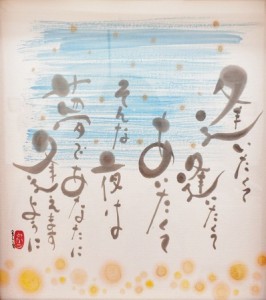 逢いたくて
逢いたくて
あいたくて
そんな
夜は
夢であなたに
逢えます
ように